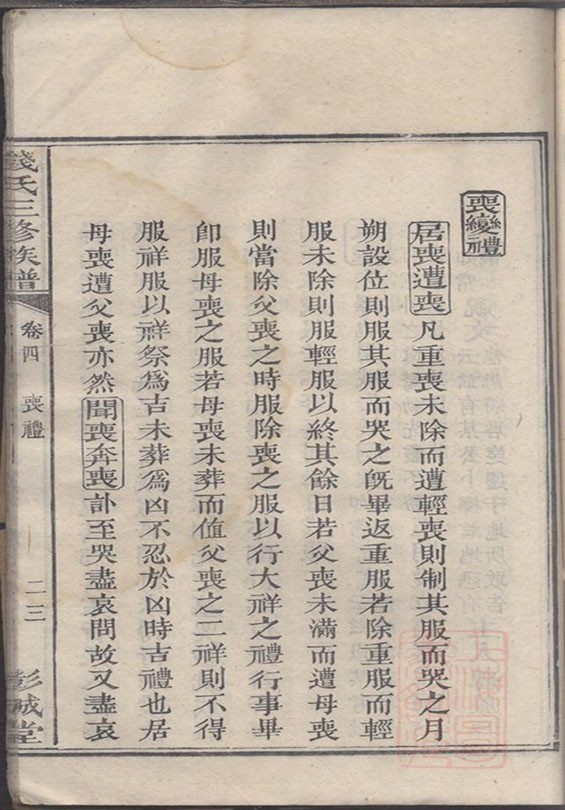 喪變禮
居喪遭喪凡重喪未除而遭輕喪則制其服而哭之月
朔設位則服其服而哭之旣畢返重服若除重服而輕
服未除則服輕服以終其餘日若父喪未滿而遭母喪
則當除父喪之時服除喪之服以行大祥之禮行事畢
卽服母喪之服若母喪未葬而值父喪之二祥則不得
服祥服以祥祭爲吉未葬爲凶不忍於凶時吉禮也居
母喪遭父喪亦然聞喪奔喪訃至哭盡哀問故又盡哀
錢氏三修族譜
卷四
喪禮
二三
彭城堂